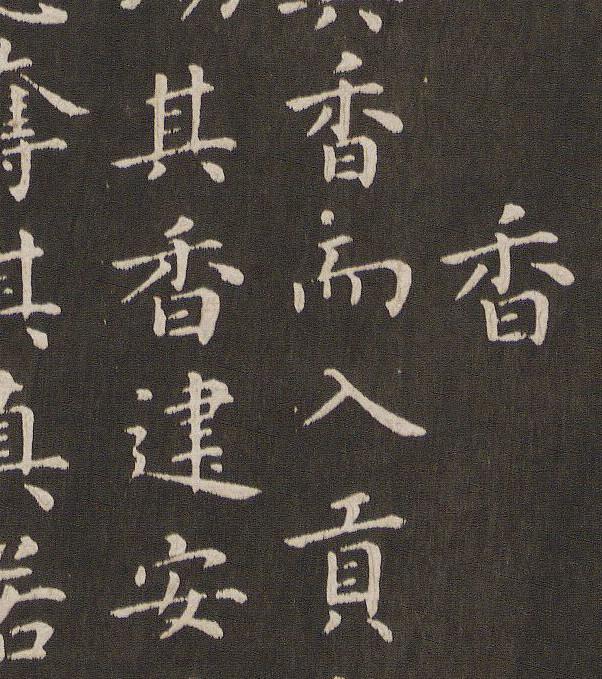 香
香而入貢
其香建安
奪其真若